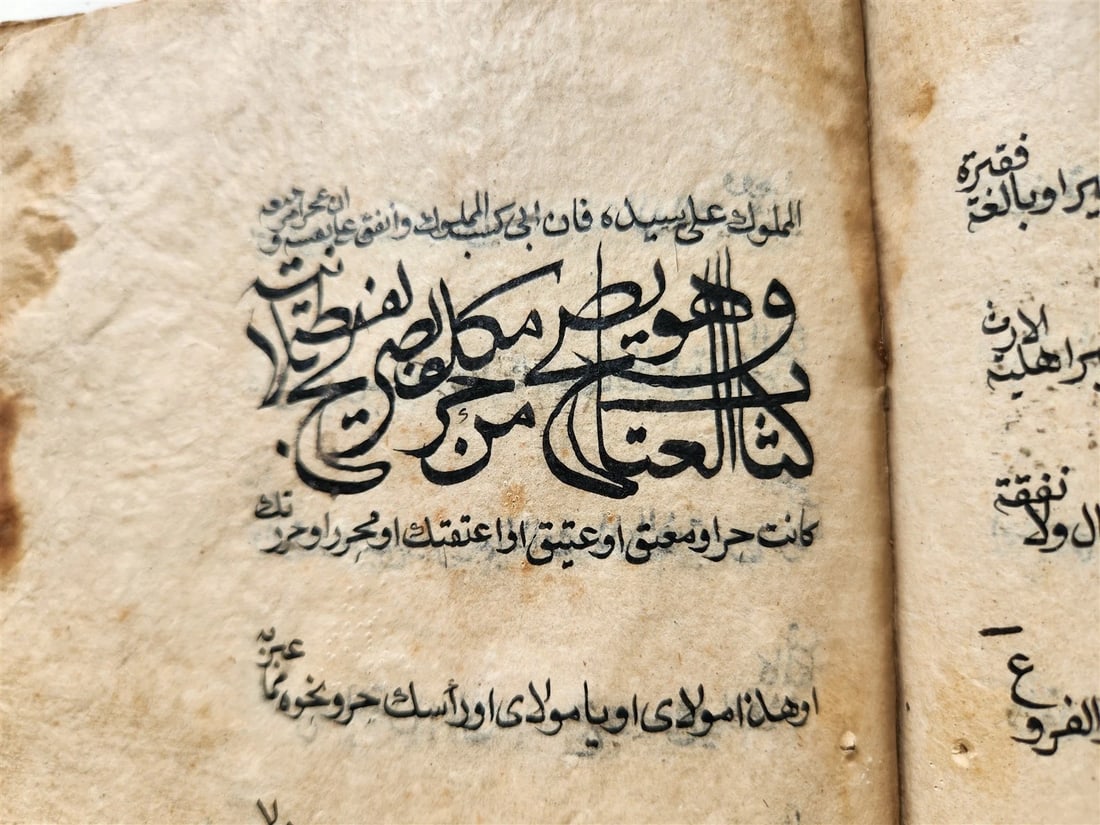 المملوك على سيده فان ابى كسب المملوك وانفق على نفسه و
كتاب العتاق
وهو يصح من حر مكلف بصريح لفظه بلا نية
كانت حر او معتق او عتيق او اعتقتك او محرر او حررتك
او هذا مولاى او يا مولاى او رأسك حر ونحوه مما عبر به
فقيرة
او بالغة
الارث
نفقة
ولا
ع
الفرو